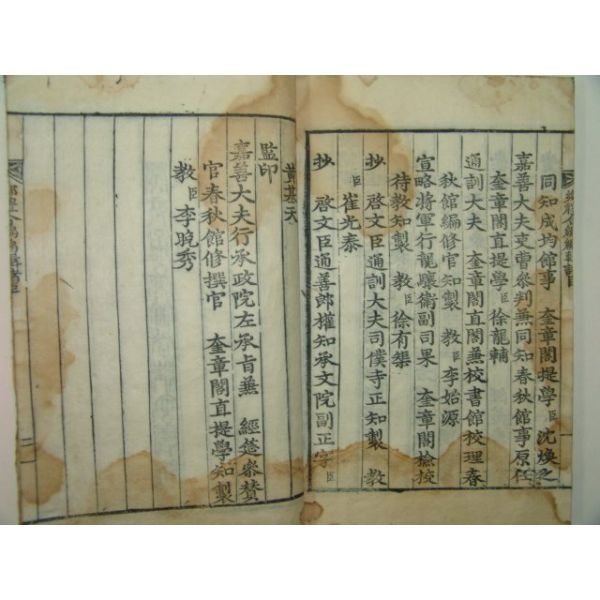 同知成均館事　奎章閣提學臣沈煥之
嘉善大夫吏曹參判兼同知春秋館事原任
奎章閣直提學臣徐龍輔
通訓大夫　奎章閣直閣兼校書館校理春
秋館編修官知製　教臣李始源
宣略將軍行龍驤衛副司果　奎章閣檢校
待教知製　教臣徐有榘
抄　啓文臣通訓大夫司僕寺正知製　教
臣崔光泰
抄　啓文臣通善郎權知承文院副正字臣
黃基天
監印
嘉善大夫行承政院左承旨兼　經筵參贊
官春秋館修撰官　奎章閣直提學知製
教臣李晚秀
一
二